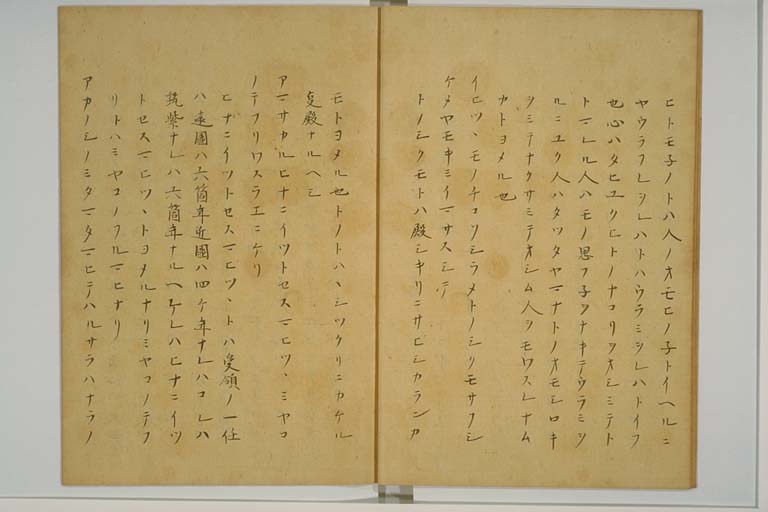 ヒトモ子ノトハ人ノオモヒノ子トイヘルニ
ヤウラフレシレハトハウラミシレハトイフ
也心ハタヒユクヒトノナコリヲオシミテト
トマレル人ハモノ思フ子ヲナキテウラミツ
ルニユク人ハタツタヤマナトノオモシロキ
ヲミテナクサミテオシム人ヲモワスレナム
カトヨメル也
イヒツヽモノチコソシラメトノシクモサフシ
ケメヤモキミイマサスシテ
トノシクモトハ殿シキリニサビシカランカ
モトヨメル也トノトハヽシツクリニカケル
皇殿ナルヘシ
アマサカルヒナニイツトセスマヒツヽミヤコ
ノテフリワスラエニケリ
ヒナニイツトセスマヒツヽトハ受領ノ一任
ハ遠國ハ六箇年近國ハ四ケ年ナレハコレハ
筑紫ナレハ六箇年ナルヘケレハヒナニイツ
トセスマヒツヽトヨメルナリミヤコノテフ
リトハミヤコノフルマヒナリ
アカノシノミタマタマヒテハルサラハナラノ